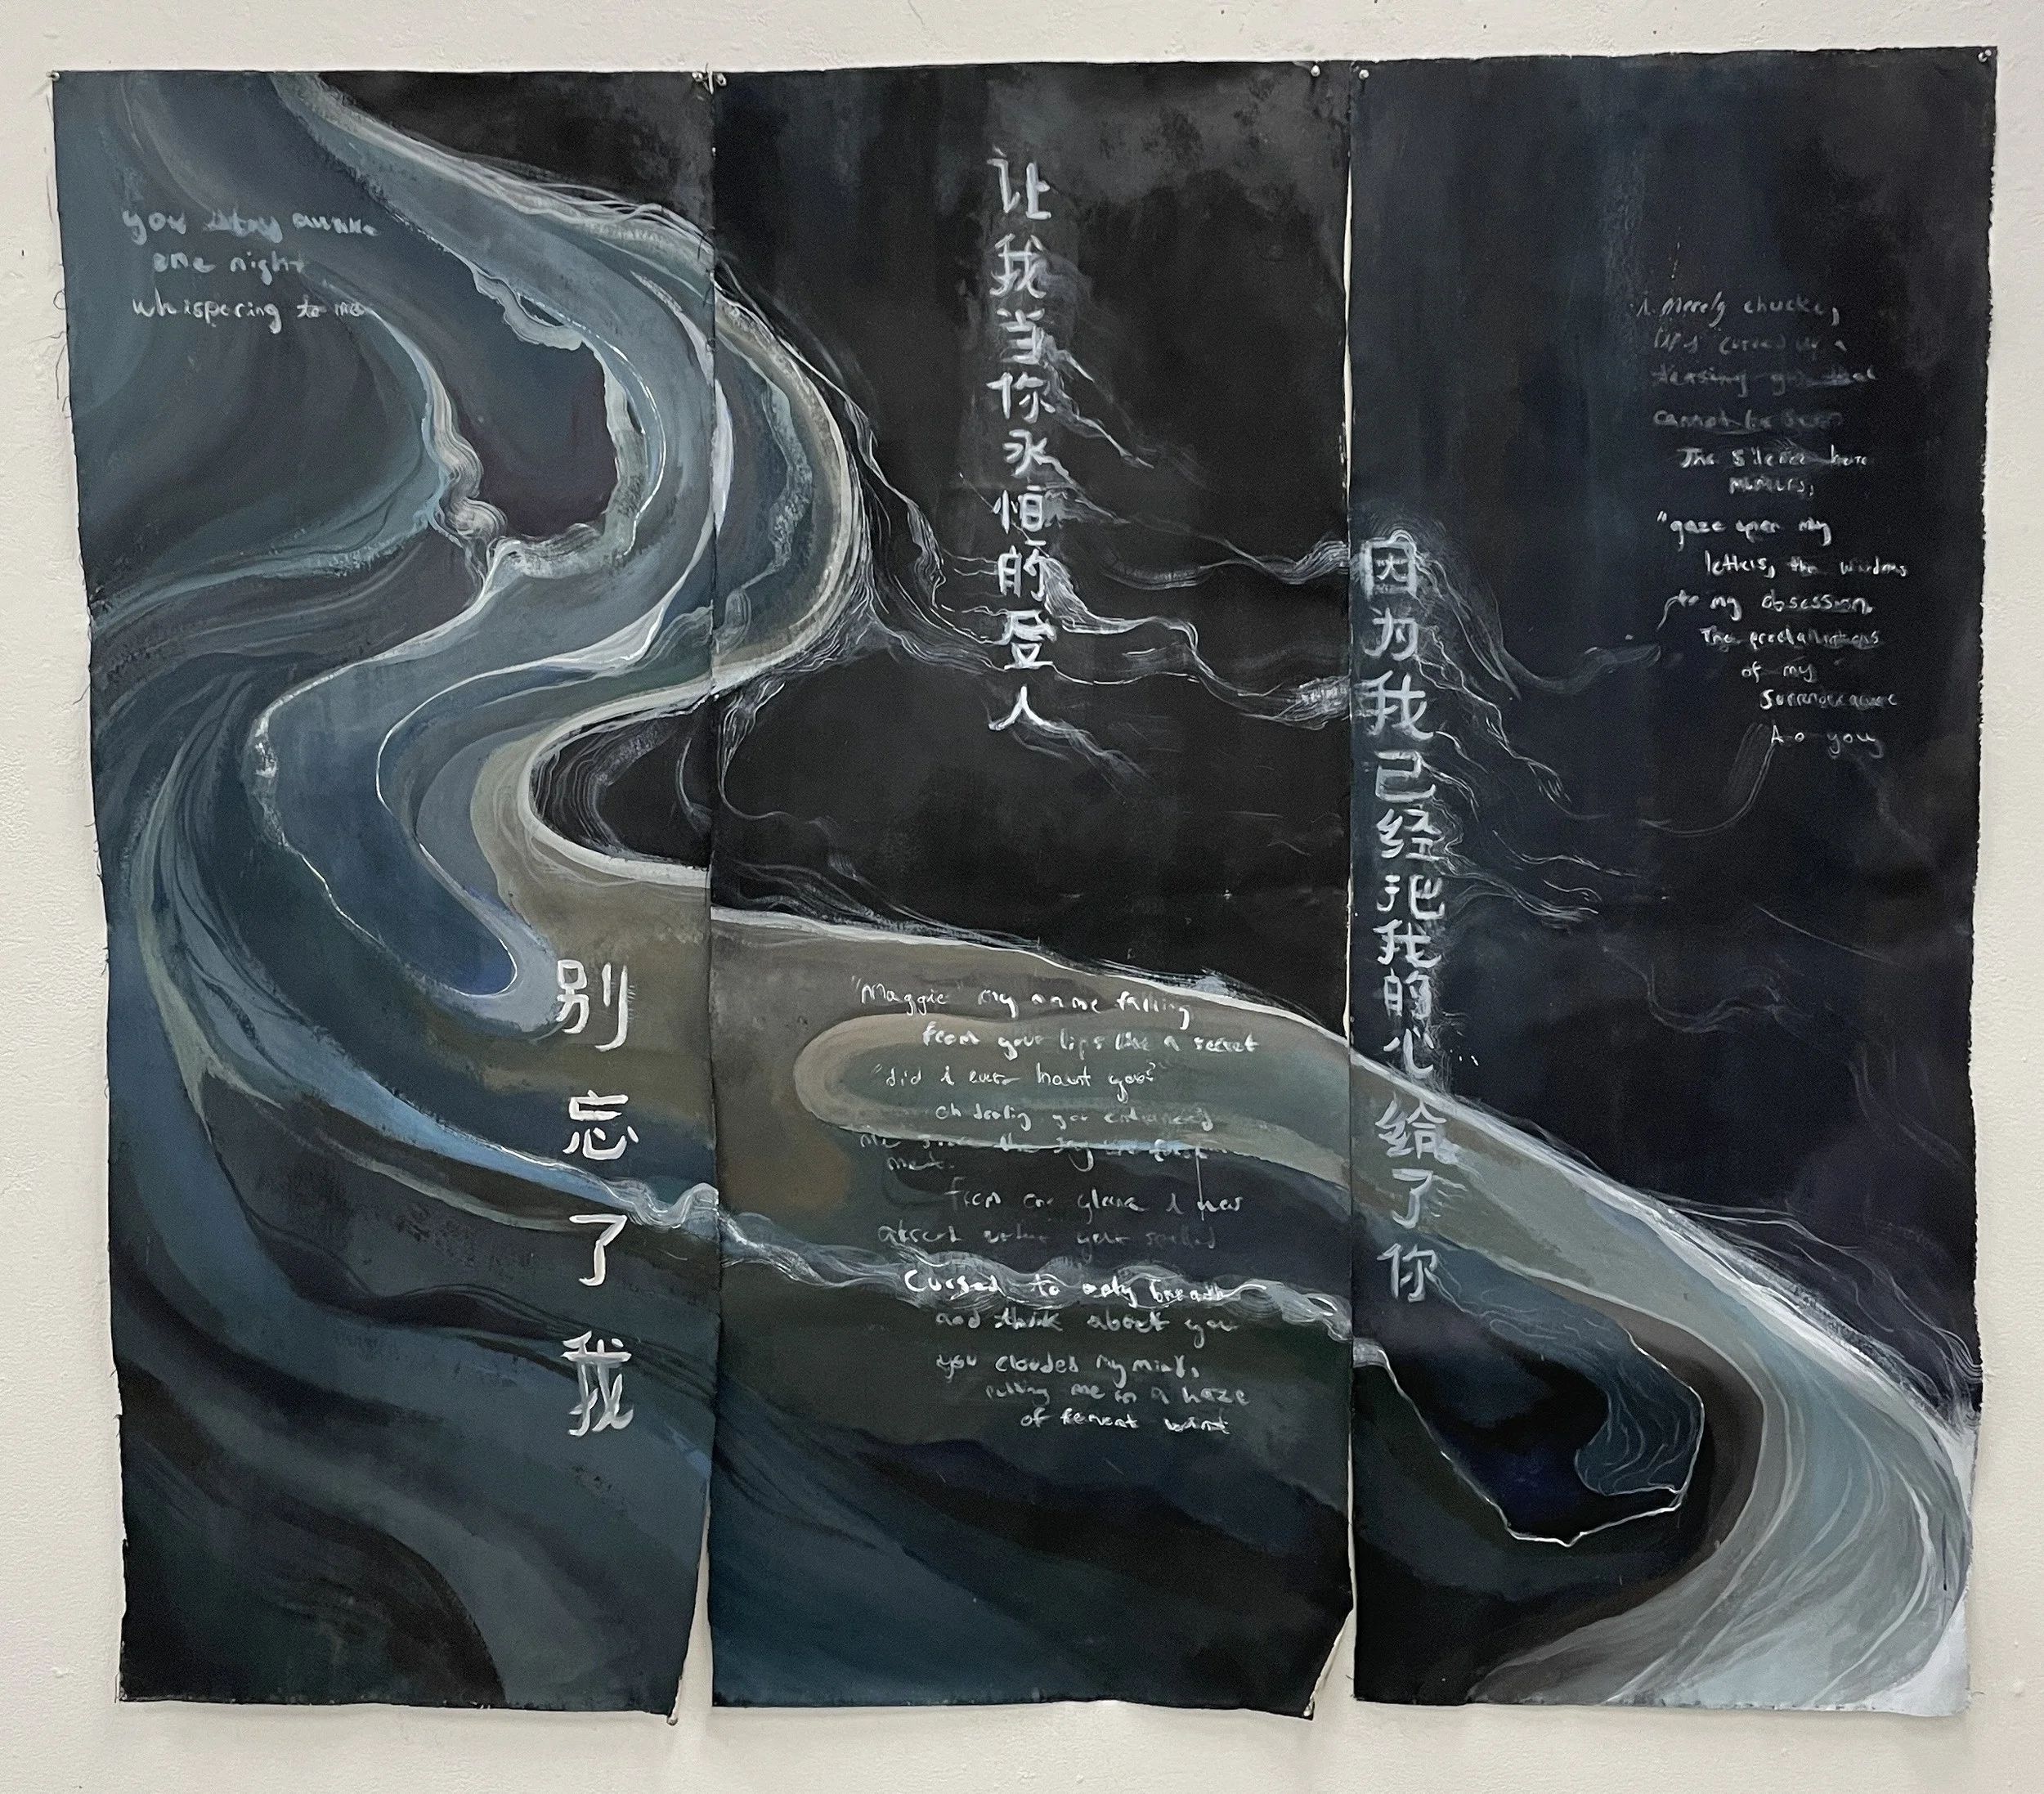 you stay awake
one night
whispering to me
别忘了我
让我当你永恒的爱人
"Maggie" my name falling
from your lips like a secret
"did i ever haunt you?
oh darling you entranced
me the day we first
met.
from one glance i was
under your
Cursed to only breath
and think about you
you clouded my mind,
putting me in a haze
of fervent want
因为我已经把我的心给了你
i merely chuckle,
lips curved
teasing grin that
cannot be seen
The silence
"gaze upon my
letters, the windows
to my obsession,
The proclamations
of my
to you